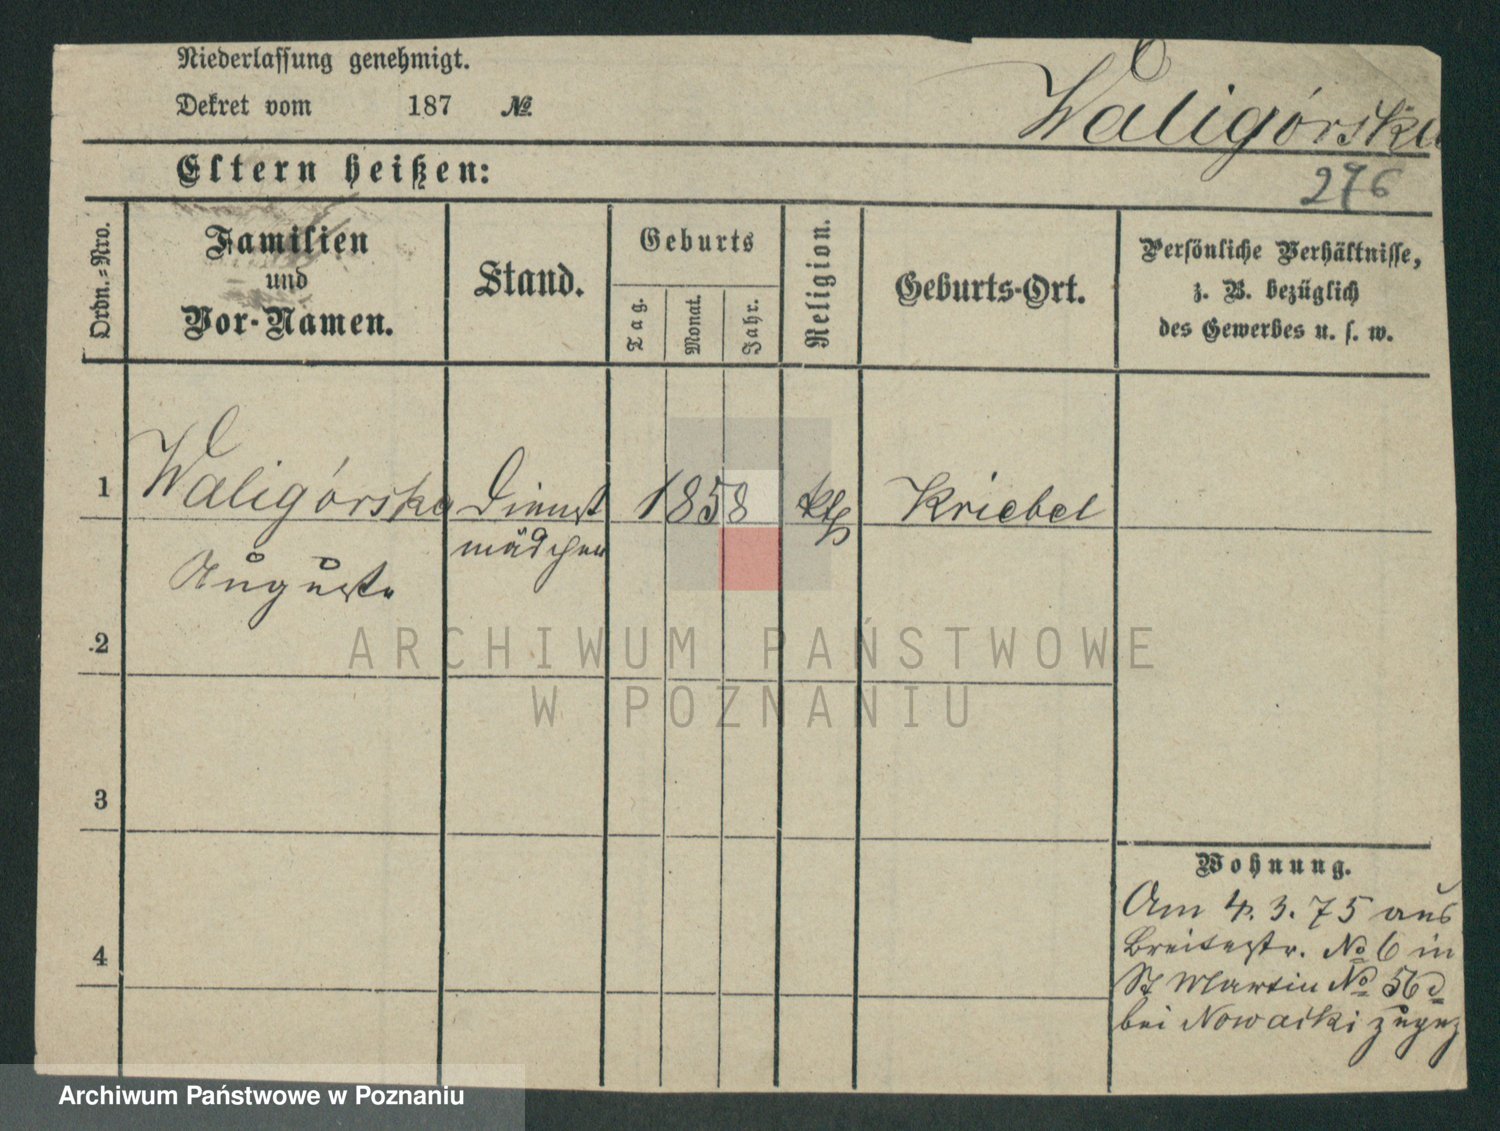 Niederlassung genehmigt.
Dekret vom 187 №
Waligórska
Eltern heißen:
276
Ordn.=Nro.
Familien
und
Vor-Namen.
Stand.
Geburts
Tag.
Monat.
Jahr.
Religion.
Geburts-Ort.
Persönliche Verhältnisse,
z. B. bezüglich
des Gewerbes u. s. w.
1 Waligórska Dienst 1858 kth Kriebel
mädchen
Auguste
2
3
4
Wohnung.
Am 4. 3. 75 aus
Breitestr. № 6 in
St Martin № 56d
bei Nowacki zugez
ARCHIWUM PAŃSTWOWE
W POZNANIU
Archiwum Państwowe w Poznaniu